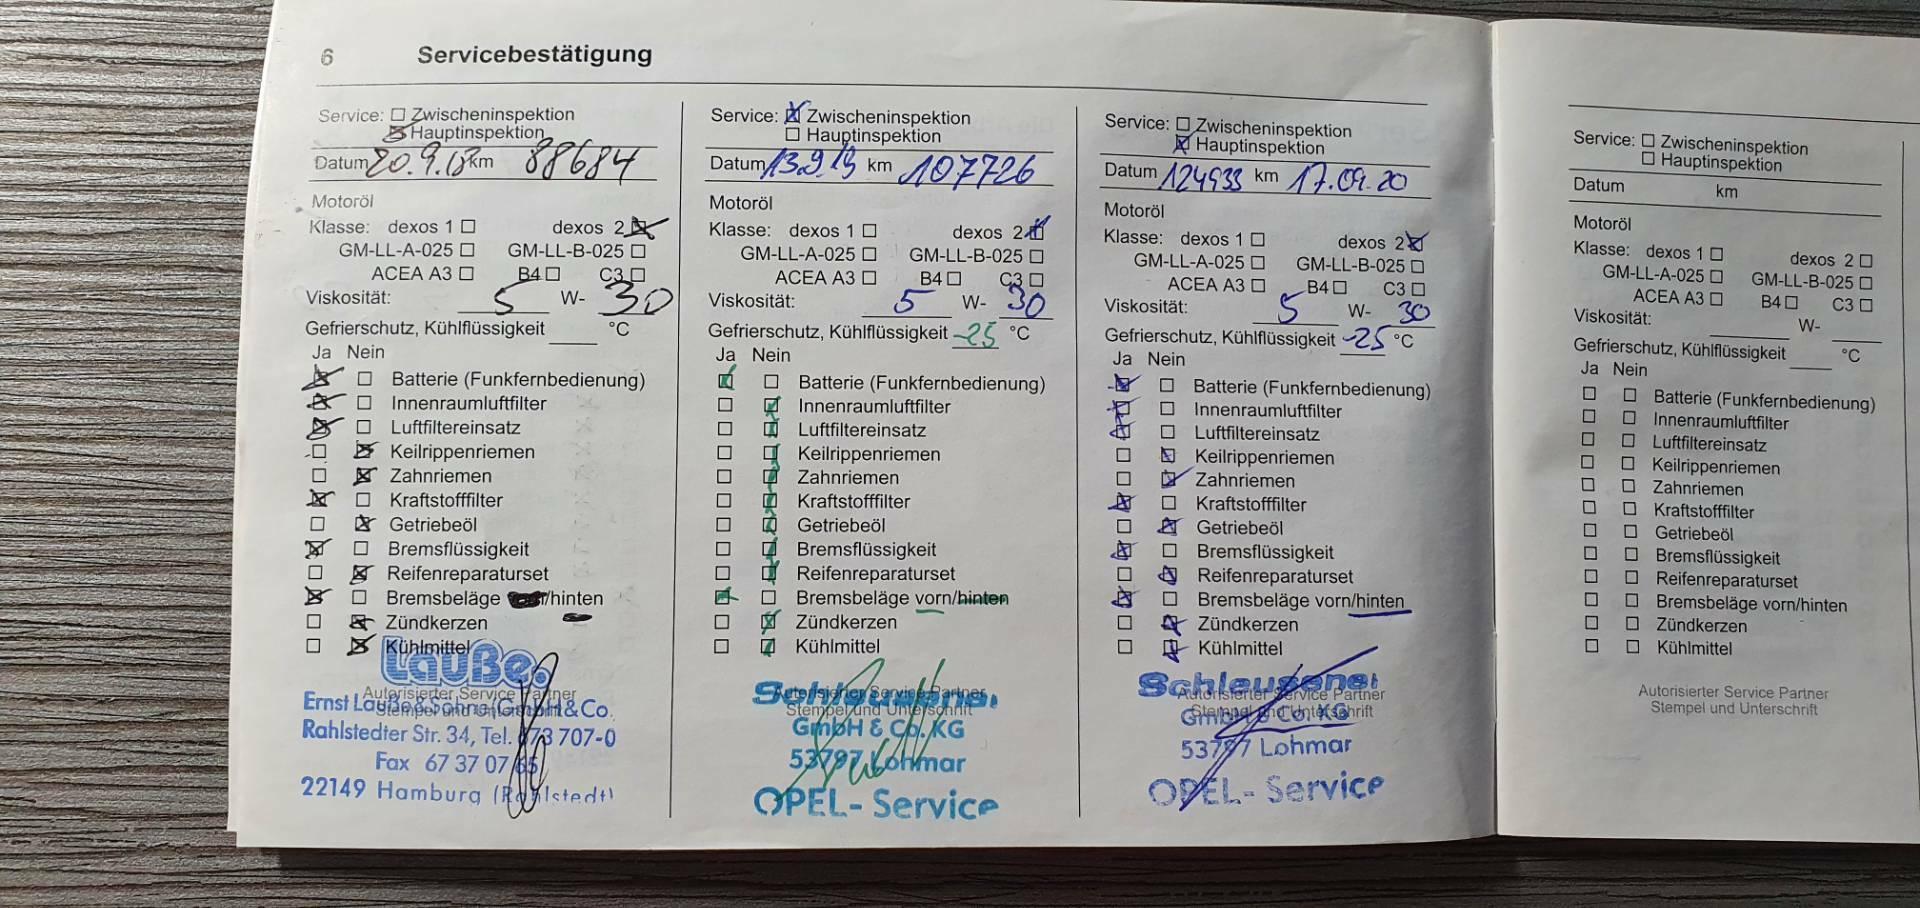 6 Servicebestätigung
Service: Zwischeninspektion
Hauptinspektion
Datum 20.9.18 km 88684
Motoröl
Klasse: dexos 1 dexos 2
GM-LL-A-025 GM-LL-B-025
ACEA A3 B4 C3
Viskosität: 5 W- 30
Gefrierschutz, Kühlflüssigkeit °C
Ja Nein
Batterie (Funkfernbedienung)
Innenraumluftfilter
Luftfiltereinsatz
Keilrippenriemen
Zahnriemen
Kraftstofffilter
Getriebeöl
Bremsflüssigkeit
Reifenreparaturset
Bremsbeläge /hinten
Zündkerzen
Kühlmittel
Lauße.
Autorisierter Service Partner
Stempel und Unterschrift
Ernst Lauße & Söhne GmbH & Co.
Rahlstedter Str. 34, Tel. 673 707-0
Fax 67 37 07 65
22149 Hamburg (Rahlstedt)
Service: Zwischeninspektion
Hauptinspektion
Datum 13.9.19 km 107726
Motoröl
Klasse: dexos 1 dexos 2
GM-LL-A-025 GM-LL-B-025
ACEA A3 B4 C3
Viskosität: 5 W- 30
Gefrierschutz, Kühlflüssigkeit -25 °C
Ja Nein
Batterie (Funkfernbedienung)
Innenraumluftfilter
Luftfiltereinsatz
Keilrippenriemen
Zahnriemen
Kraftstofffilter
Getriebeöl
Bremsflüssigkeit
Reifenreparaturset
Bremsbeläge vorn/hinten
Zündkerzen
Kühlmittel
Autorisierter Service Partner
Stempel und Unterschrift
GmbH & Co. KG
53797 Lohmar
OPEL- Service
Service: Zwischeninspektion
Hauptinspektion
Datum 124933 km 17.09.20
Motoröl
Klasse: dexos 1 dexos 2
GM-LL-A-025 GM-LL-B-025
ACEA A3 B4 C3
Viskosität: 5 W- 30
Gefrierschutz, Kühlflüssigkeit -25 °C
Ja Nein
Batterie (Funkfernbedienung)
Innenraumluftfilter
Luftfiltereinsatz
Keilrippenriemen
Zahnriemen
Kraftstofffilter
Getriebeöl
Bremsflüssigkeit
Reifenreparaturset
Bremsbeläge vorn/hinten
Zündkerzen
Kühlmittel
Autorisierter Service Partner
Stempel und Unterschrift
GmbH & Co. KG
53797 Lohmar
OPEL- Service
Service: Zwischeninspektion
Hauptinspektion
Datum km
Motoröl
Klasse: dexos 1 dexos 2
GM-LL-A-025 GM-LL-B-025
ACEA A3 B4 C3
Viskosität: W-
Gefrierschutz, Kühlflüssigkeit °C
Ja Nein
Batterie (Funkfernbedienung)
Innenraumluftfilter
Luftfiltereinsatz
Keilrippenriemen
Zahnriemen
Kraftstofffilter
Getriebeöl
Bremsflüssigkeit
Reifenreparaturset
Bremsbeläge vorn/hinten
Zündkerzen
Kühlmittel
Autorisierter Service Partner
Stempel und Unterschrift